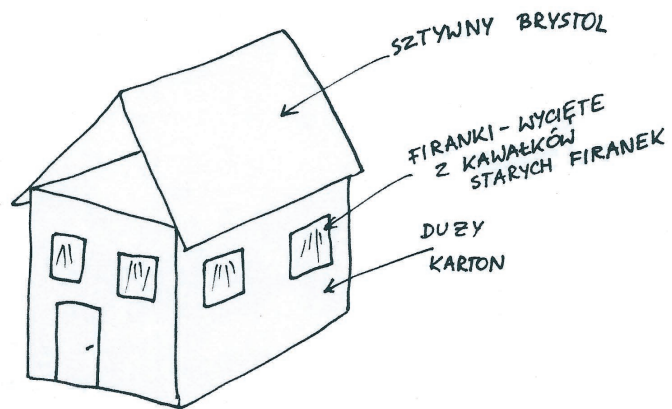 SZTYWNY BRYSTOL
FIRANKI - WYCIĘTE
Z KAWAŁKÓW
STARYCH FIRANEK
DUŻY
KARTON